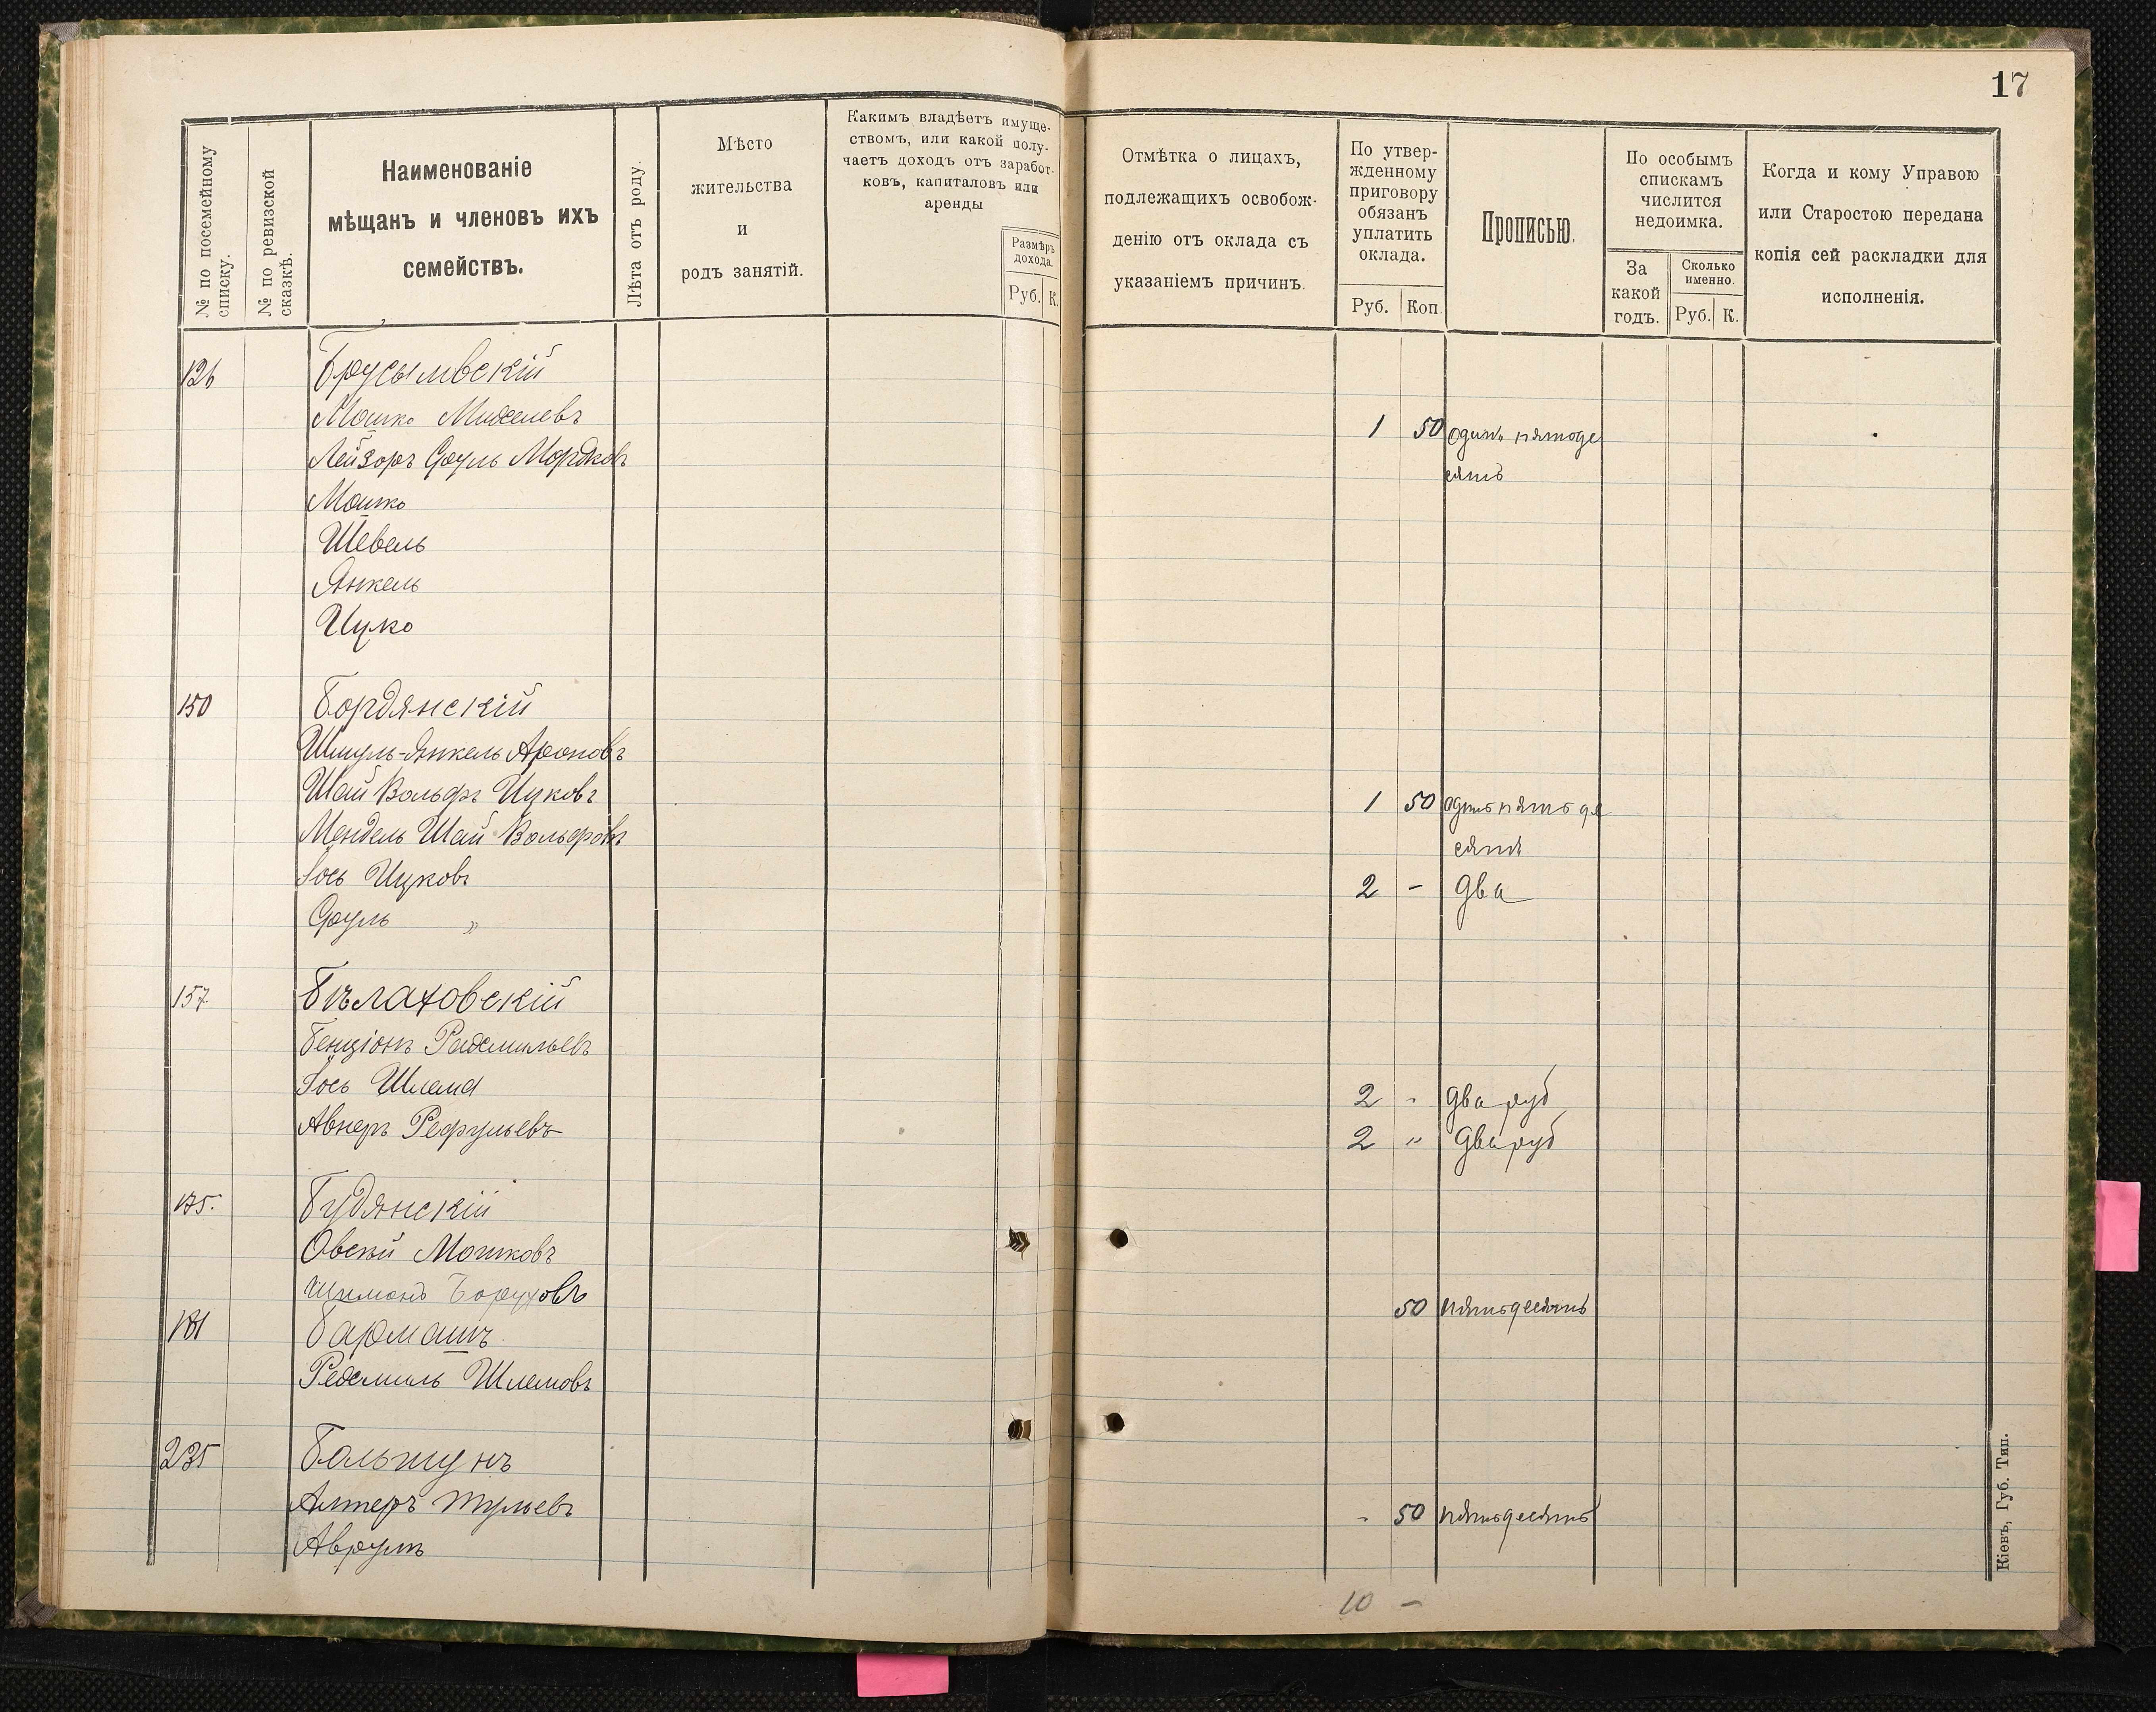 17
№ по посемейному списку.
№ по ревизской сказкѣ.
Наименованіе
мѣщанъ и членовъ ихъ
семействъ.
Лѣта отъ роду.
Мѣсто
жительства
и
родъ занятій.
Какимъ владѣетъ имуще-
ствомъ, или какой полу-
чаетъ доходъ отъ заработ-
ковъ, капиталовъ или
аренды
Размѣръ
дохода.
Руб. К.
Отмѣтка о лицахъ,
подлежащихъ освобож-
денію отъ оклада съ
указаніемъ причинъ.
По утвер-
жденному
приговору
обязанъ
уплатить
оклада.
Руб. Коп.
Прописью.
По особымъ
спискамъ
числится
недоимка.
За
какой
годъ.
Сколько
именно.
Руб. К.
Когда и кому Управою
или Старостою передана
копія сей раскладки для
исполненія.
126 Брусыловскій
Мошко Михелевъ 1 50 один пятьде
Лейзоръ Сруль Мордковъ сятъ
Мошко
Шевель
Янкель
Ицко
150 Бордянскій
Шмуль-Янкель Ароновъ
Шай Вольфъ Ицковъ 1 50 один пятьде
Мендель Шай Вольфовъ сятъ
Іось Ицковъ 2 - два
Сруль "
157 Бѣлаховскій
Бенціонъ Рахмильевъ
Іось Шлема 2 - два руб
Авнеръ Рефульевъ 2 " два руб
175. Будянскій
Овсѣй Мошковъ
Шимонъ Боруховъ 50 пятьдесятъ
181 Бармашъ
Рехмиль Шлемовъ
235 Большунъ
Алтеръ Шульевъ - 50 пятьдесятъ
Аврумъ
10 -
Кіевъ, Губ. Тип.